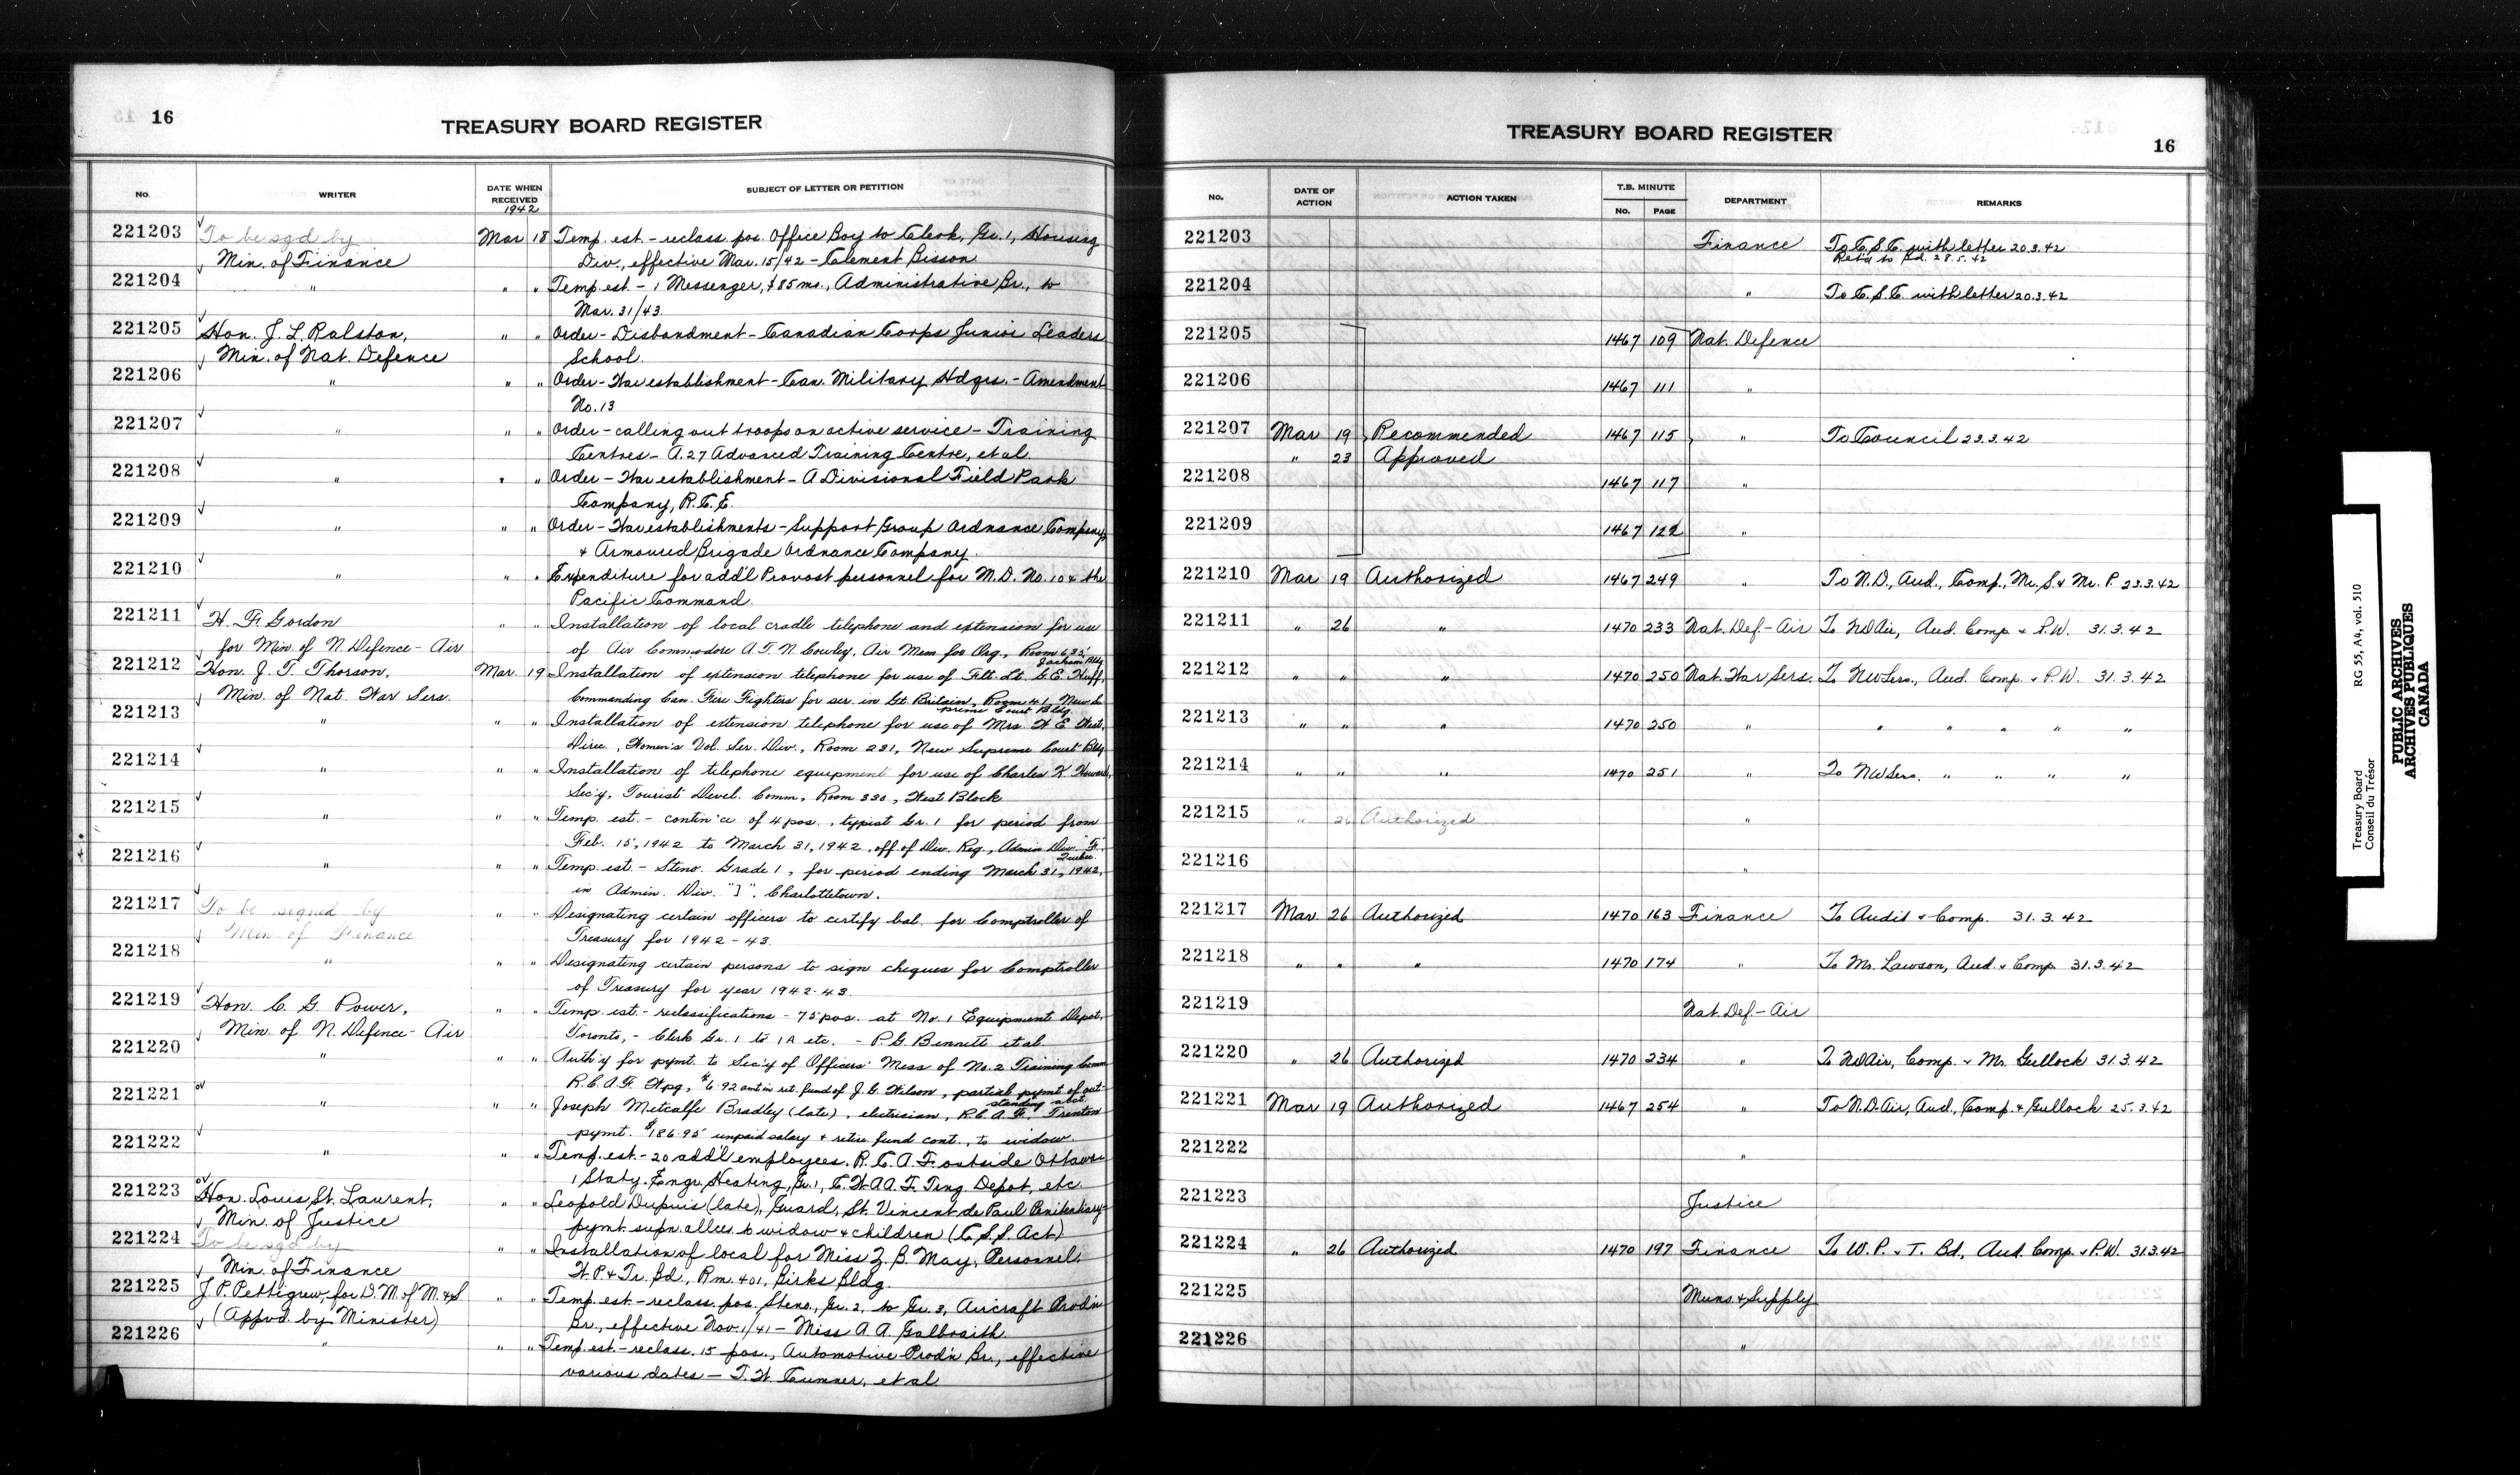 16
TREASURY BOARD REGISTER
No. WRITER DATE WHEN RECEIVED 1942 SUBJECT OF LETTER OR PETITION
221203 To be sgd by Mar 18 Temp. est. - reclass. pos. Office Boy to Clerk, Gr. 1, Housing
Min. of Finance Div., effective Mar. 15/42 - Clement Bisson
221204 " " " Temp. est. - 1 Messenger, $85 mo., Administrative Br., to
Mar. 31/43.
221205 Hon. J. L. Ralston, " " Order - Disbandment - Canadian Corps Junior Leaders
Min. of Nat. Defence School.
221206 " " " Order - War establishment - Can. Military Hdqrs. - Amendment
No. 13
221207 " " " Order - calling out troops on active service - Training
Centres - A.27 Advanced Training Centre, et al
221208 " " " Order - War establishment - A Divisional Field Park
Company, R.C.E.
221209 " " " Order - War establishments - Support Group Ordnance Company
& Armoured Brigade Ordnance Company.
221210 " " " Expenditure for add'l Provost personnel for M.D. No. 10 & the
Pacific Command.
221211 H. F. Gordon " " Installation of local cradle telephone and extension for use
for Min. of N. Defence - Air of Air Commodore A.T.N. Cowley, Air Mem. for Org., Room 635,
Jackson Bldg.
221212 Hon. J. T. Thorson, Mar. 19 Installation of extension telephone for use of Flt. Lt. G.E. Huff,
Min. of Nat. War Sers. Commanding Can. Fire Fighters for ser. in Gt Britain, Room 41, New Su
preme Court Bldg.
221213 " " " Installation of extension telephone for use of Mrs. W. E. West,
Direc., Women's Vol. Ser. Div., Room 231, New Supreme Court Bldg
221214 " " " Installation of telephone equipment for use of Charles K. Howard,
Sec'y, Tourist Devel. Comm., Room 330, West Block
221215 " " " Temp. est. - contin'ce of 4 pos., typist Gr. 1 for period from
Feb. 15, 1942 to March 31, 1942, off. of Div. Reg., Admin Div. "F"
Quebec.
221216 " " " Temp. est. - Steno. Grade 1, for period ending March 31, 1942,
in Admin. Div. "J". Charlottetown.
221217 To be signed by " " Designating certain officers to certify bal. for Comptroller of
Min of Finance Treasury for 1942-43.
221218 " " " Designating certain persons to sign cheques for Comptroller
of Treasury for year 1942-43.
221219 Hon. C. G. Power, " " Temp. est. - reclassifications - 75 pos. at No. 1 Equipment Depot,
Min. of N. Defence - Air Toronto, - Clerk Gr. 1 to 1A etc. - P.G. Bennett et al
221220 " " " Auth'y for pymt. to Sec'y of Officers' Mess of No. 2 Training Comm
R.C.A.F. Wpg, $6.92 amt in ret. fund of J. G. Wilson, partial pymt of out-
standing acct.
221221 " " " Joseph Metcalfe Bradley (late), electrician, R.C.A.F. Trenton
pymt. $186.95 unpaid salary & retir. fund cont., to widow.
221222 " " " Temp. est. - 20 add'l employees, R.C.A.F. outside Ottawa
1 Staty. Engr. Heating, Gr. 1, C.W.A.A.F. Tng. Depot, etc.
221223 Hon. Louis St. Laurent, " " Leopold Dupuis (late), Guard, St. Vincent de Paul Penitentiary
Min. of Justice pymt. supn. allces. to widow & children (C.S.S. Act)
221224 To be sgd by " " Installation of local for Miss Z. B. May, Personnel.
Min. of Finance W.P. & Tr. Bd., Rm. 401, Birks Bldg.
221225 J. P. Pettigrew, for D.M. of M. & S. " " Temp. est. - reclass. pos. Steno., Gr. 2, to Gr. 3, Aircraft Prod'n
(Appvd. by Minister) Br., effective Nov. 1/41 - Miss A. A. Galbraith.
221226 " " " Temp. est. - reclass. 15 pos., Automotive Prod'n Br., effective
various dates - T. W. Cumner, et al
TREASURY BOARD REGISTER
16
No. DATE OF ACTION ACTION TAKEN T.B. MINUTE No. PAGE DEPARTMENT REMARKS
221203 Finance To C.S.C. with letter 20.3.42
Ret'd to Bd. 28.5.42
221204 " To C.S.C. with letter 20.3.42
221205 1467 109 Nat. Defence
221206 1467 111 "
221207 Mar 19 Recommended 1467 115 " To Council 23.3.42
" 23 Approved
221208 1467 117 "
221209 1467 122 "
221210 Mar 19 Authorized 1467 249 " To N.D., Aud., Comp., Mr. S. & Mr. P. 23.3.42
221211 " 26 " 1470 233 Nat. Def - Air To ND Air, Aud. Comp. & P.W. 31.3.42
221212 " " " 1470 250 Nat. War Sers. To NWSers., Aud. Comp. & P.W. 31.3.42
221213 " " " 1470 250 " " " " " "
221214 " " " 1470 251 " To NWSers. " " " "
221215 " 26 Authorized "
221216 "
221217 Mar. 26 Authorized 1470 163 Finance To Audit & Comp. 31.3.42
221218 " " " 1470 174 " To Mr. Lawson, Aud. & Comp. 31.3.42
221219 Nat. Def. - Air
221220 " 26 Authorized 1470 234 " To ND Air, Comp. & Mr. Gullock 31.3.42
221221 Mar 19 Authorized 1467 254 " To N.D. Air, Aud., Comp. & Gullock 25.3.42
221222 "
221223 Justice
221224 " 26 Authorized 1470 197 Finance To W.P. & T. Bd, Aud. Comp. & P.W. 31.3.42
221225 Muns. & Supply
221226 "
Treasury Board
Conseil du Trésor
RG 55, A4, vol. 510
PUBLIC ARCHIVES
ARCHIVES PUBLIQUES
CANADA